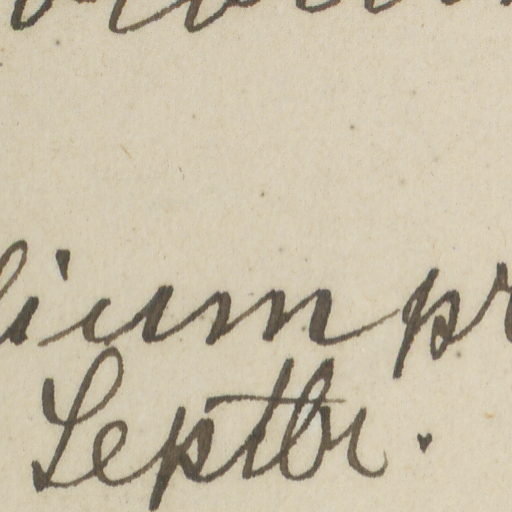 lium pr
Septbr.